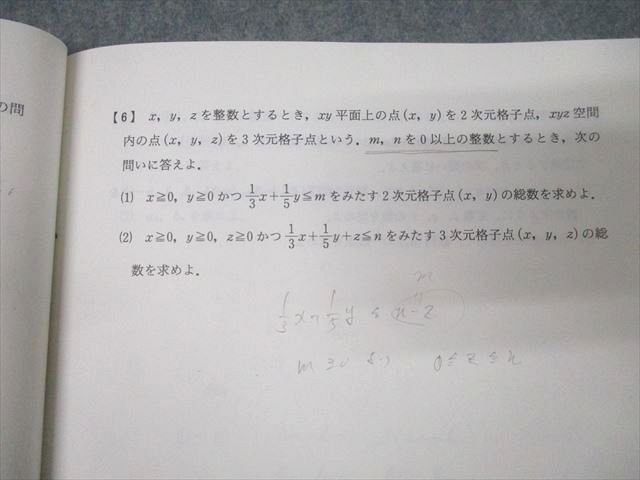 の問
【6】 x, y, zを整数とするとき, xy平面上の点(x, y)を2次元格子点, xyz空間
内の点(x, y, z)を3次元格子点という. m, nを0以上の整数とするとき, 次の
問いに答えよ.
(1) x≧0, y≧0かつ 1/3 x+ 1/5 y≦mをみたす2次元格子点(x, y)の総数を求めよ.
(2) x≧0, y≧0, z≧0かつ 1/3 x+ 1/5 y+z≦nをみたす3次元格子点(x, y, z)の総
数を求めよ.
m
1/3 x+ 1/5 y ≦ n-z
m≧0 より 0≦z≦n